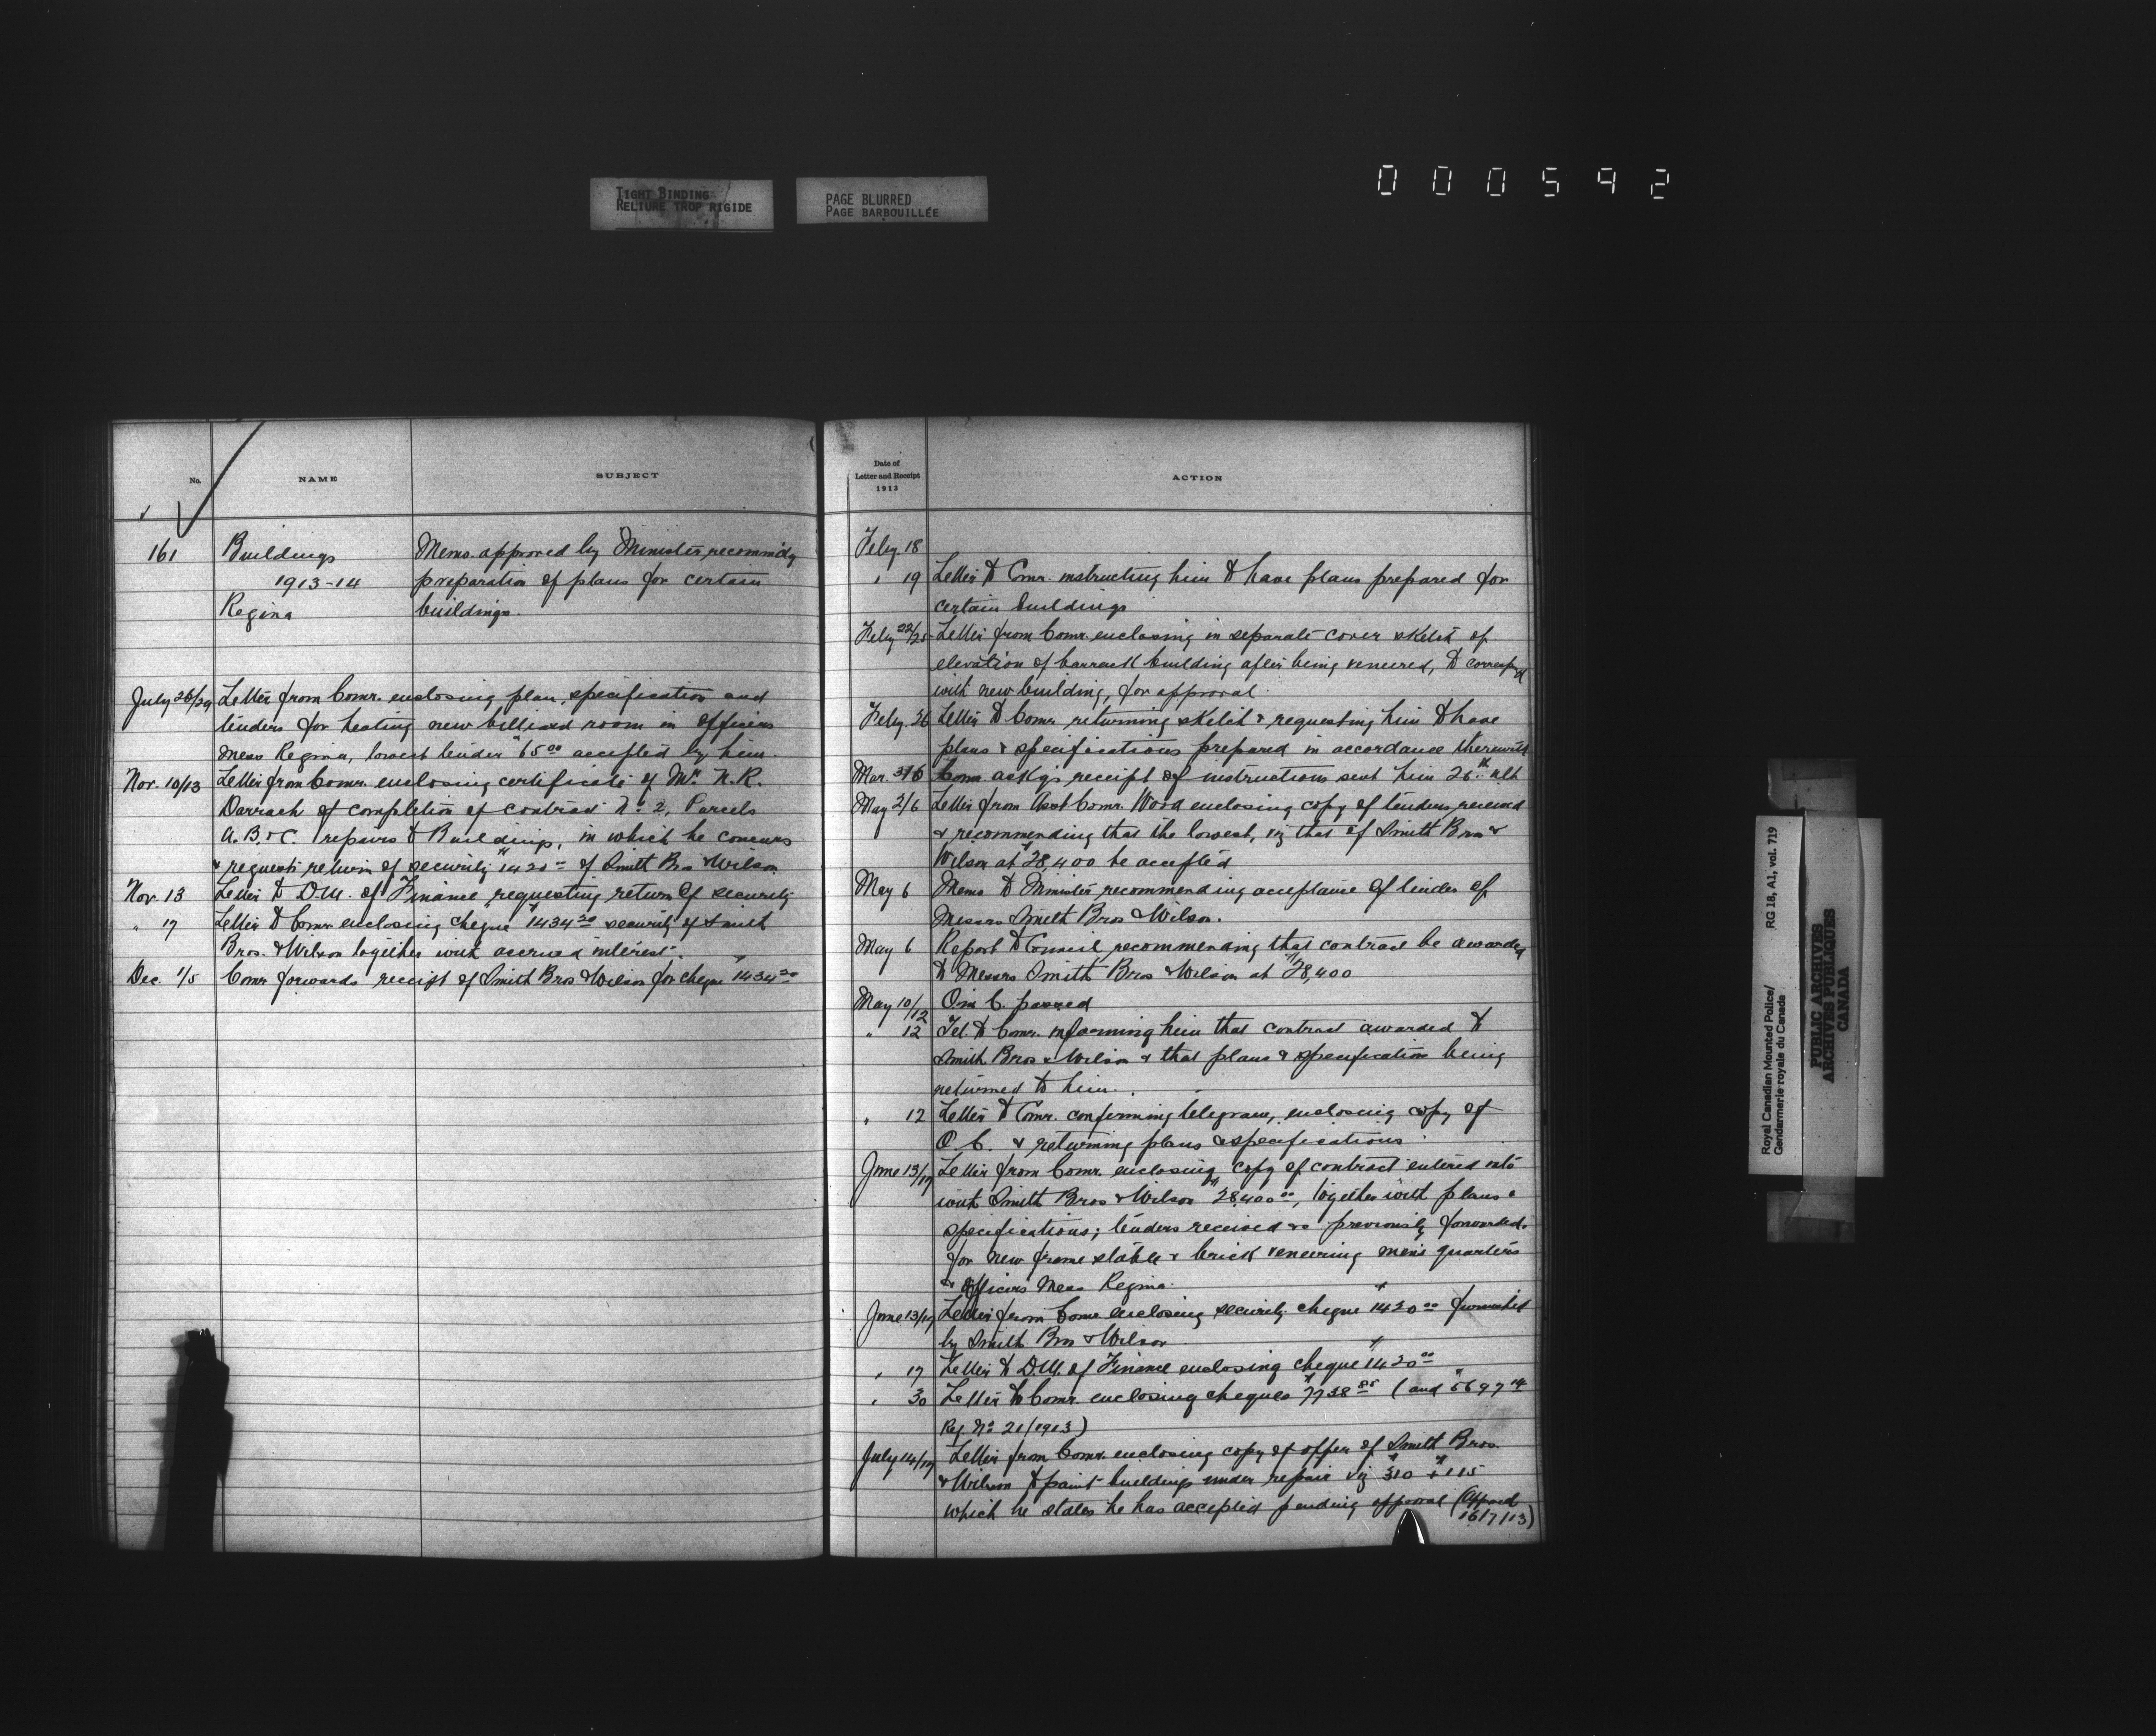 TIGHT BINDING
RELIURE TROP RIGIDE
PAGE BLURRED
PAGE BARBOUILLÉE
000592
No.
NAME
SUBJECT
161
Buildings
1913-14
Regina
Memo. approved by Minister, recommdg
preparation of plans for certain
buildings.
July 26/29 Letter from Comr. enclosing plan, specification and
tenders for heating new billiard room in Officers
Mess Regina, lowest tender $65.00 accepted by him.
Nov. 10/13 Letter from Comr. enclosing certificate of Mr. N.R.
Darrach of completion of contract No. 2, Parcels
A. B. & C. repairs to Buildings, in which he concurs
& requests return of security $1420.00 of Smith Bros & Wilson
Nov. 13 Letter to D.M. of Finance requesting return of security
" 17 Letter to Comr. enclosing cheque $1434.20 security of Smith
Bros. & Wilson together with accrued interest.
Dec. 1/5 Comr. forwards receipt of Smith Bros & Wilson for cheque $1434.20
Date of
Letter and Receipt
1913
ACTION
Feby. 18
" 19 Letter to Comr. instructing him to have plans prepared for
certain buildings
Feby 22/25 Letter from Comr. enclosing in separate cover sketch of
elevation of barrack building after being veneered, to correspd
with new building, for approval.
Feby. 26 Letter to Comr. returning sketch & requesting him to have
plans & specifications prepared in accordance therewith
Mar. 3/6 Comr. ackgs receipt of instructions sent him 26th ult
May 2/6 Letter from Asst. Comr. Wood enclosing copy of tenders received
& recommending that the lowest, viz that of Smith Bros &
Wilson at $28,400 be accepted
May 6 Memo to Minister recommending acceptance of tender of
Messrs Smith Bros & Wilson.
May 6 Report to Council recommending that contract be awarded
to Messrs Smith Bros & Wilson at $28,400
May 10/12 O in C. passed
" 12 Tel. to Comr. informing him that contract awarded to
Smith Bros & Wilson & that plans & specification being
returned to him.
" 12 Letter to Comr. confirming telegram, enclosing copy of
O. C. & returning plans & specifications.
June 13/17 Letter from Comr. enclosing copy of contract entered into
with Smith Bros & Wilson $28,400.00, together with plans &
specifications; tenders received previously forwarded.
for new frame stable & brick veneering men's quarters
& Officers' Mess Regina.
June 13/17 Letter from Comr. enclosing security cheque $1420.00 furnished
by Smith Bros & Wilson
" 17 Letter to D.M. of Finance enclosing cheque $1420.00
" 30 Letter to Comr. enclosing cheques $7738.85 (and $5697.14
Reg. No. 21/1913)
July 14/17 Letter from Comr. enclosing copy of offer of Smith Bros.
& Wilson to paint buildings under repair viz $310 & $115
which he states he has accepted pending approval (Approved
16/7/13)
Royal Canadian Mounted Police/
Gendarmerie royale du Canada
RG 18, A1, vol. 719
PUBLIC ARCHIVES
ARCHIVES PUBLIQUES
CANADA